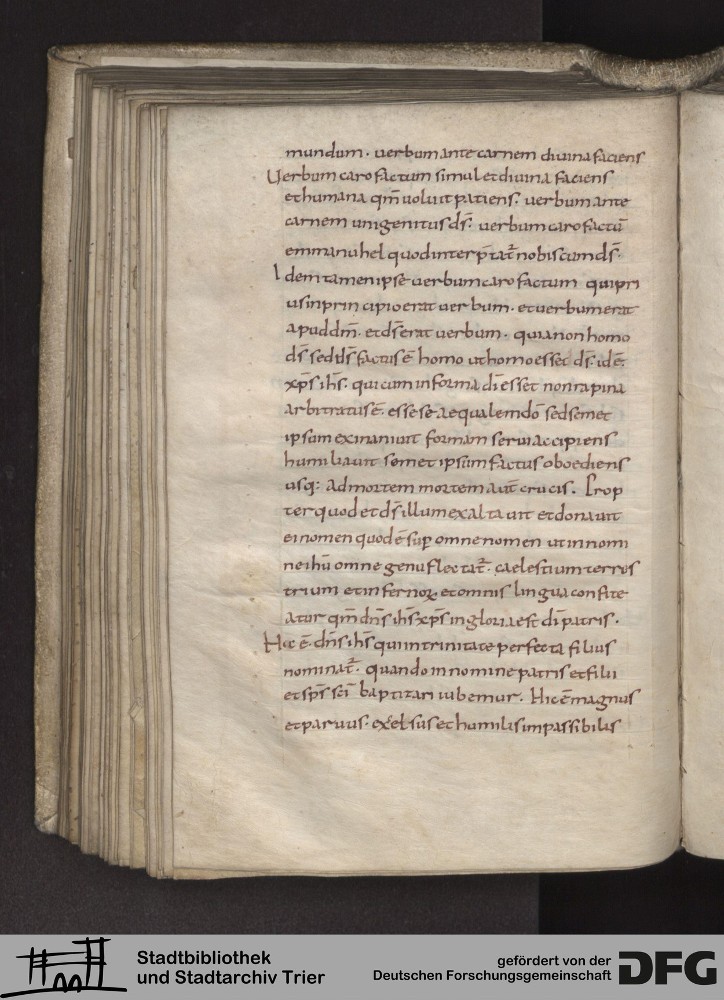 mundum · uerbum ante carnem diuina faciens
Uerbum caro factum simul et diuina faciens
et humana qm̄ uoluit patiens· uerbum ante
carnem unigenitus ds̄· uerbum caro factū
emmanuhel quod interp̄tat̄ nobiscum ds̄·
Idem tamen ipse uerbum caro factum qui pri
us in principio erat uerbum · et uerbum erat
apud dm̄ · et ds̄ erat uerbum · quia non homo
ds̄ sed ds̄ factus ē homo ut homo esset ds̄· idē·
xp̄s ih̄s· qui cum in forma dī esset non rapina
arbitratus ē· esse se aequalem dō sed semet
ipsum exinaniuit formam serui accipiens
humiliauit semet ipsum factus oboediens
usq: ad mortem mortem aut̄ crucis. Prop
ter quod et ds̄ illum exaltauit et donauit
ei nomen quod ē sup̄ omne nomen ut in nomi
ne ih̄u omne genu flectat̄· caelestium terres
trium et infernoꝝ et omnis lingua confite
atur qm̄ dn̄s ih̄s xp̄s in gloria est dī patris ·
Hic ē dn̄s ih̄s qui in trinitate perfecta filius
nominat̄· quando in nomine patris et filii
et sp̄s sc̄i baptizari iubemur. Hic ē magnus
et paruus· excelsus et humilis impassibilis
Stadtbibliothek
und Stadtarchiv Trier
gefördert von der
Deutschen Forschungsgemeinschaft
DFG